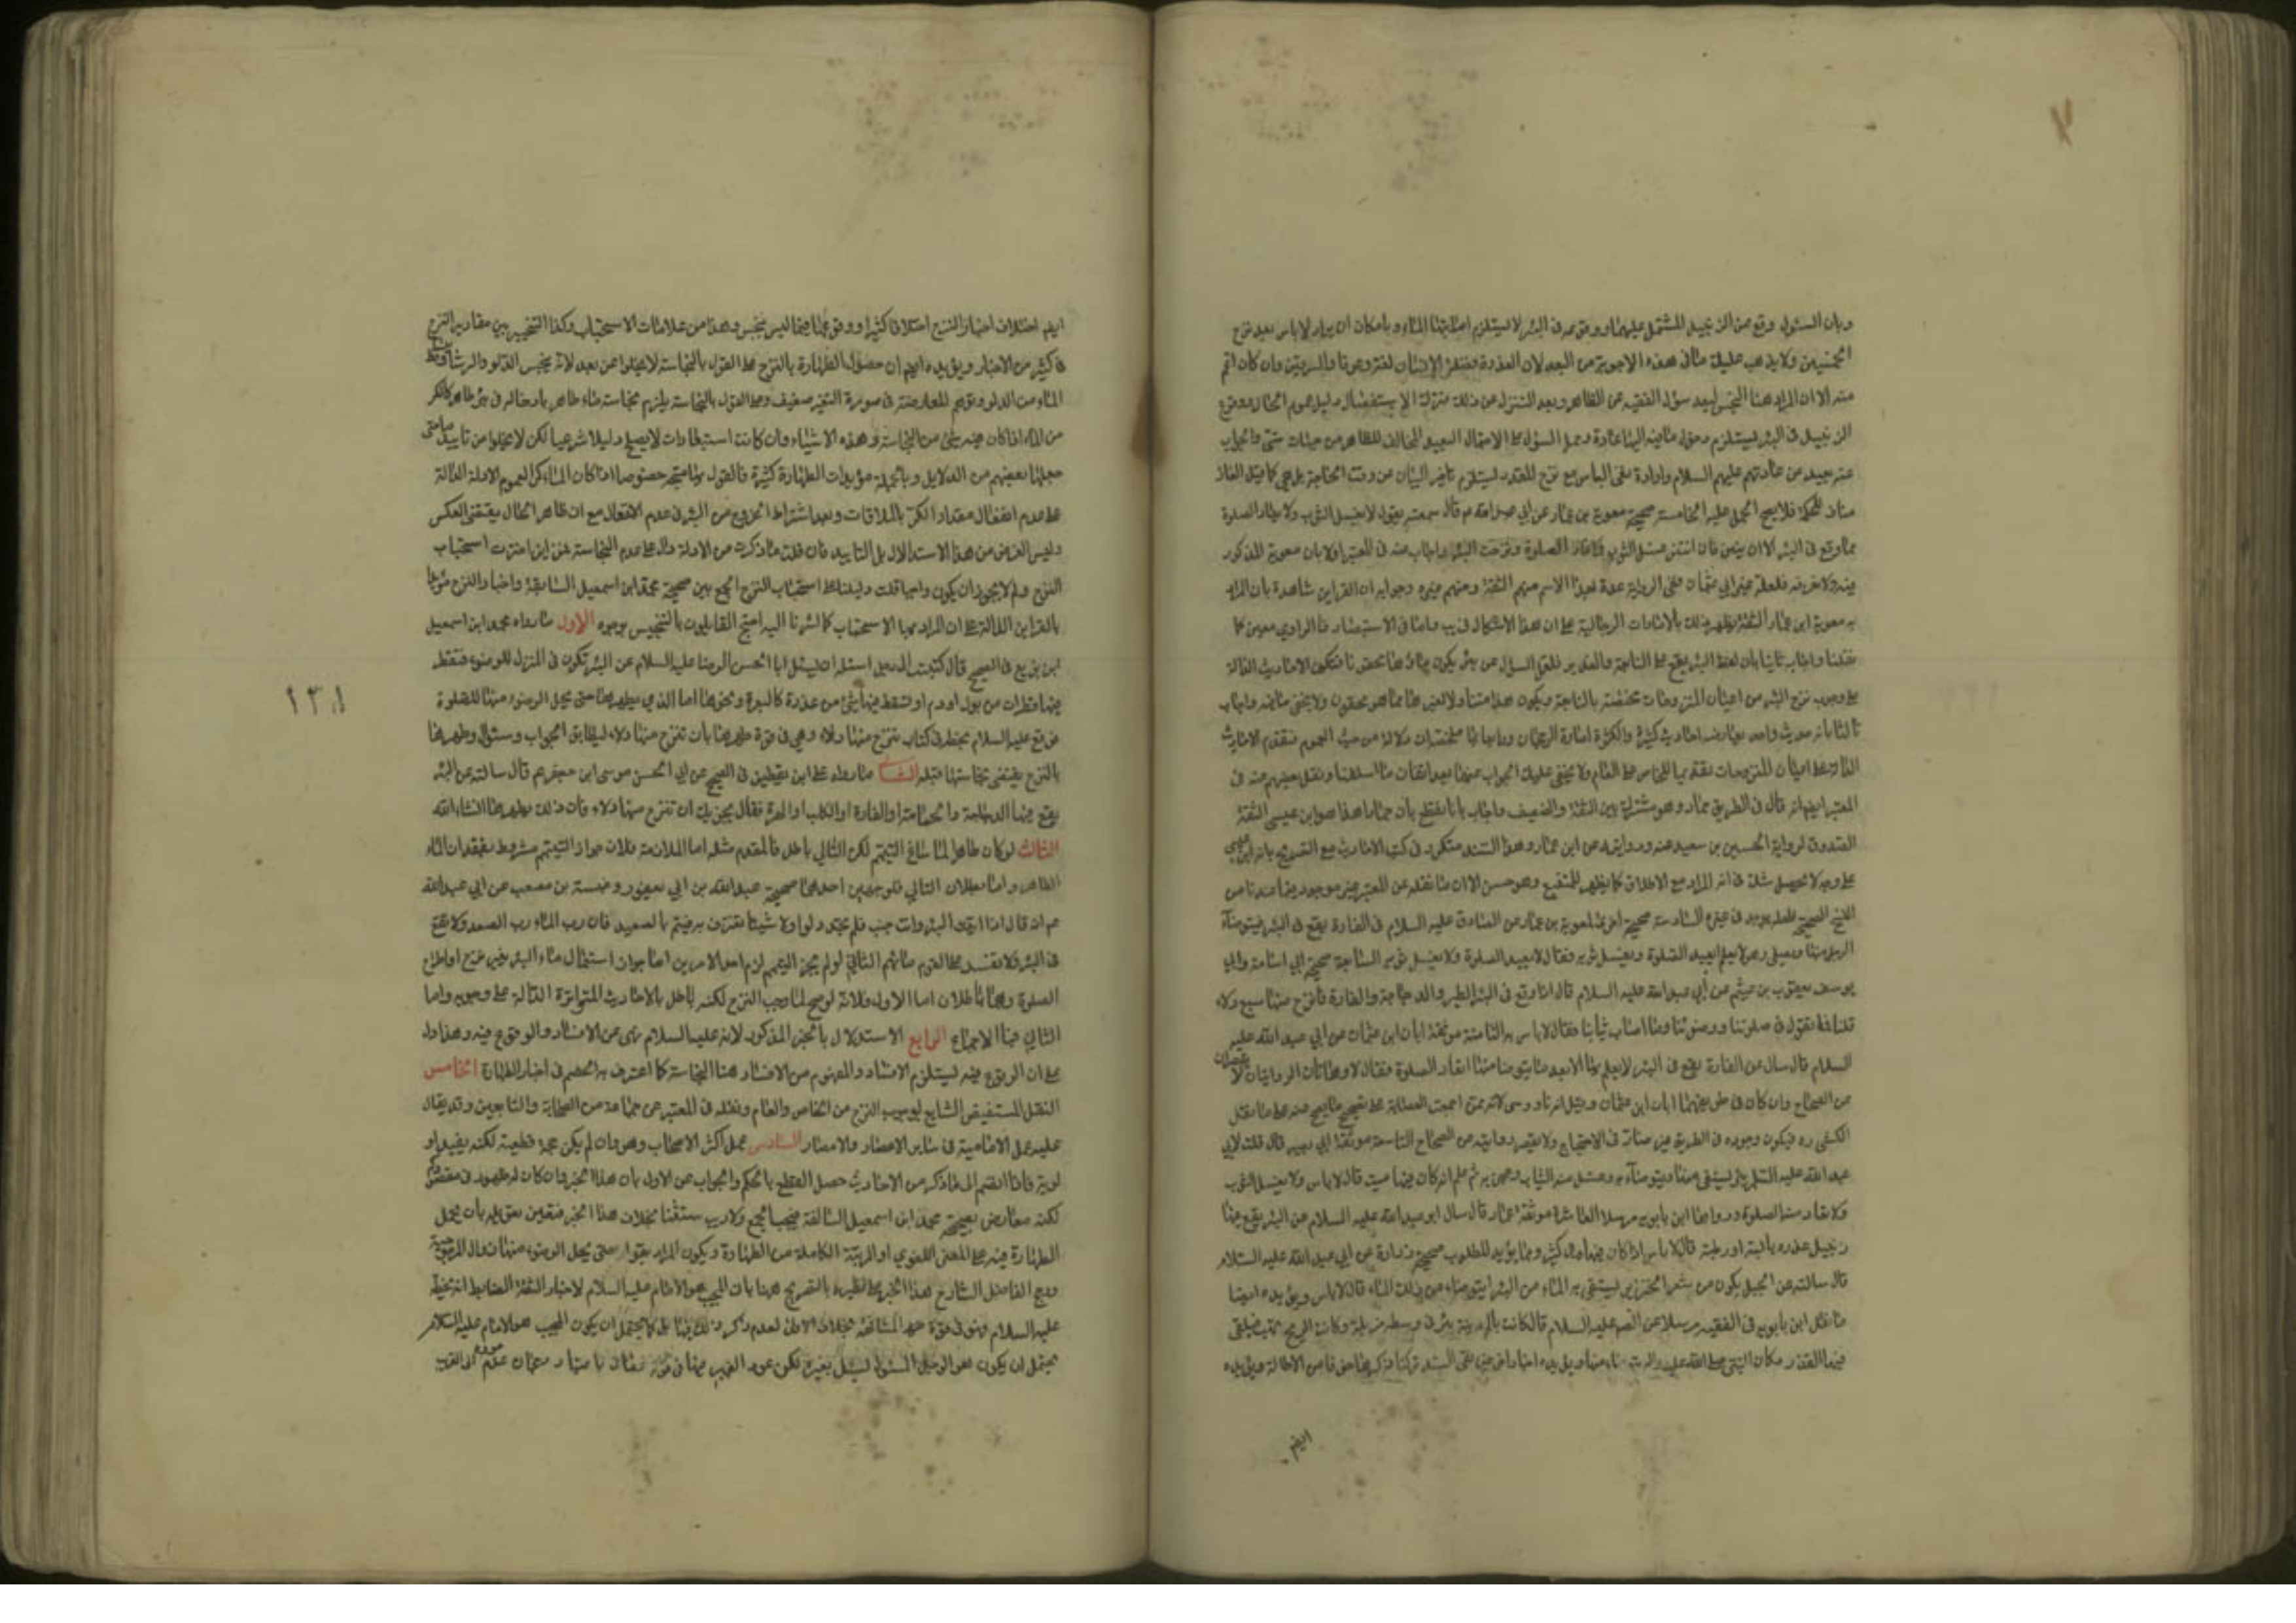 وبان السئول وقع عن الزنبيل المشتمل عليهما ووقوعه في البئر لا يستلزم اصابتها الماء وبامكان ان يراد لا باس بعد نزح
الخمسين ولا يذهب عليك ما في هذه الاجوبة من البعد لان العذرة فضلة الانسان لغة وعرفا والسرقين وان كان اعم
منه الا ان المراد هنا النجس لبعد سؤل الفقيه عن الطاهر وبعد التنزل عن ذلك منزلة الاستفضال دليل عموم الحال ووقوع
الزنبيل في البئر يستلزم وصول ما فيه اليها عادة وحمل السؤل على الاحتمال البعيد المخالف للظاهر من جهات شتى والجواب
عنه بعيد من عادتهم عليهم السلام وارادة نفي الباس مع نزح المقدر يستلزم تاخير البيان عن وقت الحاجة بل هي كما قيل الغاز
مناف للحكمة فلا يصح الحمل عليه الخامسة صحيحة معوية بن عمار عن ابي عبد الله عم قال سمعته يقول لا يغسل الثوب ولا يعاد الصلوة
مما وقع في البئر الا ان ينتن فان انتن غسل الثوب واعاد الصلوة ونزحت البئر واجاب عنه في المعتبر اولا بان معوية المذكور
فيه ولا نعرفه فلعله غير ابي عمار ففي الرواية عدة بهذا الاسم منهم الثقة ومنهم غيره وجوابه ان القراين شاهدة بان المراد
به معوية ابن عمار الثقة يظهر ذلك بالامارات الرجالية على ان هذا الاشكال قريب واما في الاستبصار فالراوي معوية كما
نقلنا واجاب ثانيا بان لفظ البئر يقع على النابعة والغدير فلعل السؤل عن بئر يكون ماؤها محقونا فتكون الاحاديث الدالة
على وجوب نزح البئر من اعيان المنزوحات مختصة بالنابعة ويكون هذا متناولا لغيرها مما هو محقون ولا يخفى ما فيه واجاب
ثالثا بانه حديث واحد يعارضه احاديث كثيرة والكثرة امارة الرجحان
الدالة على اعيان المنزوحات تقديما للخاص على العام ولا يخفى عليك الجواب عنها بعد اتقان ما اسلفنا ونقل بعضهم عنه في
المعتبر ايضا انه قال في الطريق حماد وهو مشترك بين الثقة والضعيف واجاب بانا نقطع بان حمادا هذا هو ابن عيسى الثقة
الصدوق لرواية الحسين بن سعيد عنه وروايته عن ابن عمار وهذا السند متكرر في كتب الاحاديث مع التصريح بانه ابن عيسى
على وجه لا يحصل شك في انه المراد مع الاطلاق كما يظهر للمتتبع وهو حسن الا ان ما نقله عن المعتبر غير موجود فيما عندنا من
النسخ الصحيحة فلعله يوجد في غيره السادسة صحيحة اخرى لمعوية بن عمار عن الصادق عليه السلام في الفارة يقع في البئر فيتوضأ
الرجل منها ويصلي وهو لا يعلم ايعيد الصلوة ويغسل ثوبه فقال لا يعيد الصلوة ولا يغسل ثوبه السابعة صحيحة ابي اسامة وابي
يوسف يعقوب بن عيثم عن ابي عبد الله عليه السلام قال اذا وقع في البئر الطير والدجاجة والفارة فانزح منها سبع دلاء
قلنا فما تقول في صلوتنا ووضوئنا وما اصاب ثيابنا فقال لا باس به الثامنة موثقة ابان ابن عثمان عن ابي عبد الله عليه
السلام قال سال عن الفارة تقع في البئر لا يعلم بها الا بعد ما يتوضا منها ايعاد الصلوة فقال لا وهاتان الروايتان لا يقصران
عن الصحاح وان كان في طريقهما ابان ابن عثمان وقيل انه ناووسي لانه ممن اجمعت العصابة على تصحيح ما يصح عنه على ما نقل
الكشي ره فيكون وجوده في الطريق غير مناف في الاحتجاج ولا يقصر روايته عن الصحاح التاسعة موثقة ابي بصير قال قلت لابي
عبد الله عليه السلم بئر يستقى منها ويتوضأ به وغسل منه الثياب وعجن به ثم علم انه كان فيها ميت قال لا باس ولا يغسل الثوب
ولا تعاد منه الصلوة ورواها ابن بابويه مرسلا العاشرة موثقة عمار قال سال ابو عبد الله عليه السلام عن البئر يقع فيها
زنبيل عذرة يابسة او رطبة قال لا باس اذا كان فيها ماء كثير ومما يؤيد المطلوب صحيحة زرارة عن ابي عبد الله عليه السلام
قال سالته عن الحبل يكون من شعر الخنزير يستقى به الماء من البئر ايتوضاء من ذلك الماء قال لا باس ويؤيده ايضا
ما نقل ابن بابويه في الفقيه مرسلا عن الصم عليه السلام قال كانت بالمدينة بئر في وسط مزبلة وكانت الريح تهب فيلقي
فيها القذر وكان النبي صلى الله عليه واله يتوضاء منها ويؤيده اخبار اخر غير نقي السند تركنا ذكرها خوفا من الاطالة ويؤيده
ايضا
ايضا اختلاف اخبار النزح اختلافا كثيرا ووقوعها فيما ليس بنجس وهذا من علامات الاستحباب وكذا التخيير بين مقادير النزح
في كثير من الاخبار ويؤيده ايضا ان حصول الطهارة بالنزح على القول بالنجاسة لا يخلوا عن بعد لانه ينجس الدلو والرشا وتساقط
الماء من الدلو وتوهم المعارضة في صورة التغير ضعيف وعلى القول بالنجاسة يلزم نجاسة ماء طاهر بادخاله في بئر طاهر كالكر
من الماء اذا كان فيه شئ من النجاسة وهذه الاشياء وان كانت استبعادات لا يصلح دليلا شرعيا لكن لا يخلوا من تاييد ما حتى
جعلها بعضهم من الدلايل وبالجملة مؤيدات الطهارة كثيرة فالقول بها متجه خصوصا اذا كان الماء كرا لعموم الادلة الدالة
على عدم انفعال مقدار الكر بالملاقات وبعد اشتراط الخروج عن البئر في عدم الانفعال مع ان ظاهر الحال يقتضي العكس
وليس الغرض من هذا الاستدلال بل التاييد فان قلت ما ذكرت من الادلة دال على عدم النجاسة فمن اين اخترت استحباب
النزح ولم لا يجوز ان يكون واجبا قلت دليلنا على استحباب النزح الجمع بين صحيحة محمد ابن اسمعيل السابقة واخبار النزح
بالقراين الدالة على ان المراد بها الاستحباب كما اشرنا اليه احتج القايلون بالتنجيس بوجوه الاول ما رواه محمد ابن اسمعيل
ابن بزيع في الصحيح قال كتبت الى رجل اسئله ان يسئل ابا الحسن الرضا عليه السلام عن البئر تكون في المنزل للوضوء فتقطر
فيها قطرات من بول او دم او تسقط فيها شئ من عذرة كالبعرة ونحوها اما الذي يطهرها حتى يحل الوضوء منها للصلوة
فوقع عليه السلام بخطه في كتابي تنزح منها دلاء وهي في قوة طهرها بان تنزح منها دلاء ليطابق الجواب وسئوال وطهرها
بالنزح يقتضي نجاستها قبله الثاني ما رواه علي ابن يقطين في الصحيح عن ابي الحسن موسى ابن جعفر عم قال سالته عن البئر
يقع فيها الدجاجة والحمامة او الفارة او الكلب او الهرة فقال يجزيك ان تنزح منها دلاء فان ذلك يطهرها انشاء الله
الثالث لو كان طاهرا لما ساغ التيمم لكن التالي باطل فالمقدم مثله اما الملازمة فلان جواز التيمم مشروط بفقدان الماء
الطاهر واما بطلان التالي فلوجهين احدهما صحيحة عبد الله بن ابي يعفور وعنبسة بن مصعب عن ابي عبد الله
عم انه قال اذا اتيت البئر وانت جنب فلم تجد دلوا ولا شيئا تغترف به فتيمم بالصعيد فان رب الماء رب الصعيد ولا تقع
في البئر فلا تفسد على القوم ماءهم الثاني لو لم يجز التيمم لزم احد الامرين اما جواز استعمال ماء البئر بغير نزح او اطراح
الصلوة وهما باطلان اما الاول فلانه لو صح لما وجب النزح لكنه باطل بالاحاديث المتواترة الدالة على وجوبه واما
الثاني فبالاجماع الرابع الاستدلال بالخبر المذكور لانه عليه السلام نهى عن الافساد والوقوع فيه وهذا دل
على ان الوقوع فيه يستلزم الافساد والمفهوم من الافساد هنا النجاسة كما اعترف به الخصم في اخبار الطهارة الخامس
النقل المستفيض الشايع بوجوب النزح عن الخاص والعام ونقله في المعتبر عن جماعة من الصحابة والتابعين وقد يقال
عليه عمل الامامية في ساير الاعصار والامصار السادس عمل اكثر الاصحاب وهو وان لم يكن حجة قطعية لكنه يفيد
فاذا انضم الى ما ذكر من الاحاديث حصل القطع بالحكم والجواب عن الاول بان هذا الخبر وان كان له ظهور في مقصودكم
لكنه معارض بصحيحة محمد ابن اسمعيل السالفة فيجب الجمع ولا ريب
الطهارة فيه على المعنى اللغوي او المرتبة الكاملة من الطهارة ويكون المراد بقوله حتى يحل الوضوء منها
ورجح الفاضل الشارح هذا الخبر على نظيره بالتصريح هنا بان المجيب هو الامام عليه السلام لاخبار الثقة الضابط انه بخطه
عليه السلام فهو في قوة المشافهة بخلاف الاول لعدم ذكر ذلك فيه بل كما يحتمل ان يكون المجيب هو الامام عليه السلام
يحتمل ان يكون هو الرجل المسئول ليسئل بغيره لكن عود الضمير
١٣١